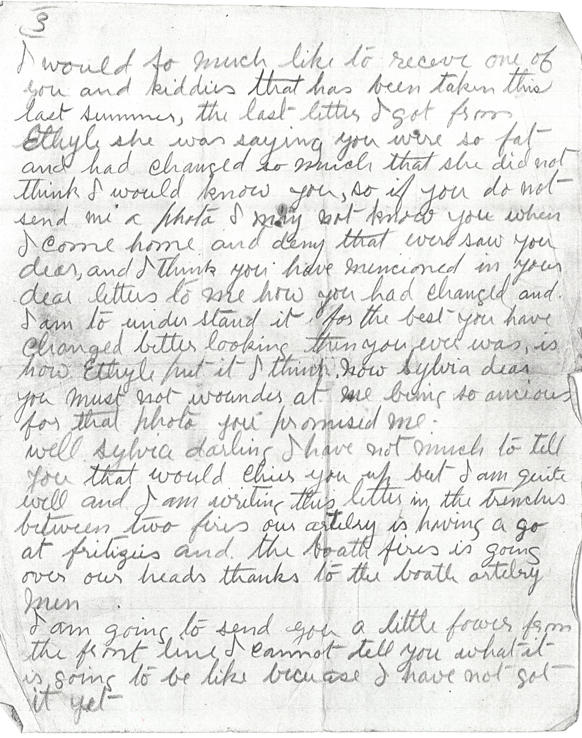 3
I would so much like to receve one of
you and kiddies that has been taken this
last summer, the last letter I got from
Ethyle she was saying you were so fat
and had changed so much that she did not
think I would know you, so if you do not
send me a photo I may not know you when
I come home and deny that I ever saw you
dear, and I think you have mencioned in your
dear letters to me how you had changed and
I am to under stand it is for the best you have
changed better looking then you ever was, is
how Ethyle put it I think, now Sylvia dear
you must not wounder at me being so anxious
for that photo you promised me.
well Sylvia darling I have not much to tell
you that would chier you up but I am quite
well and I am writing this letter in the trenches
between two fires our artelry is having a go
at fritizies and the boath fires is going
over our heads thanks to the boath artelry
men .
I am going to send you a little fower from
the front line I cannot tell you what it
is going to be like becuase I have not got
it yet